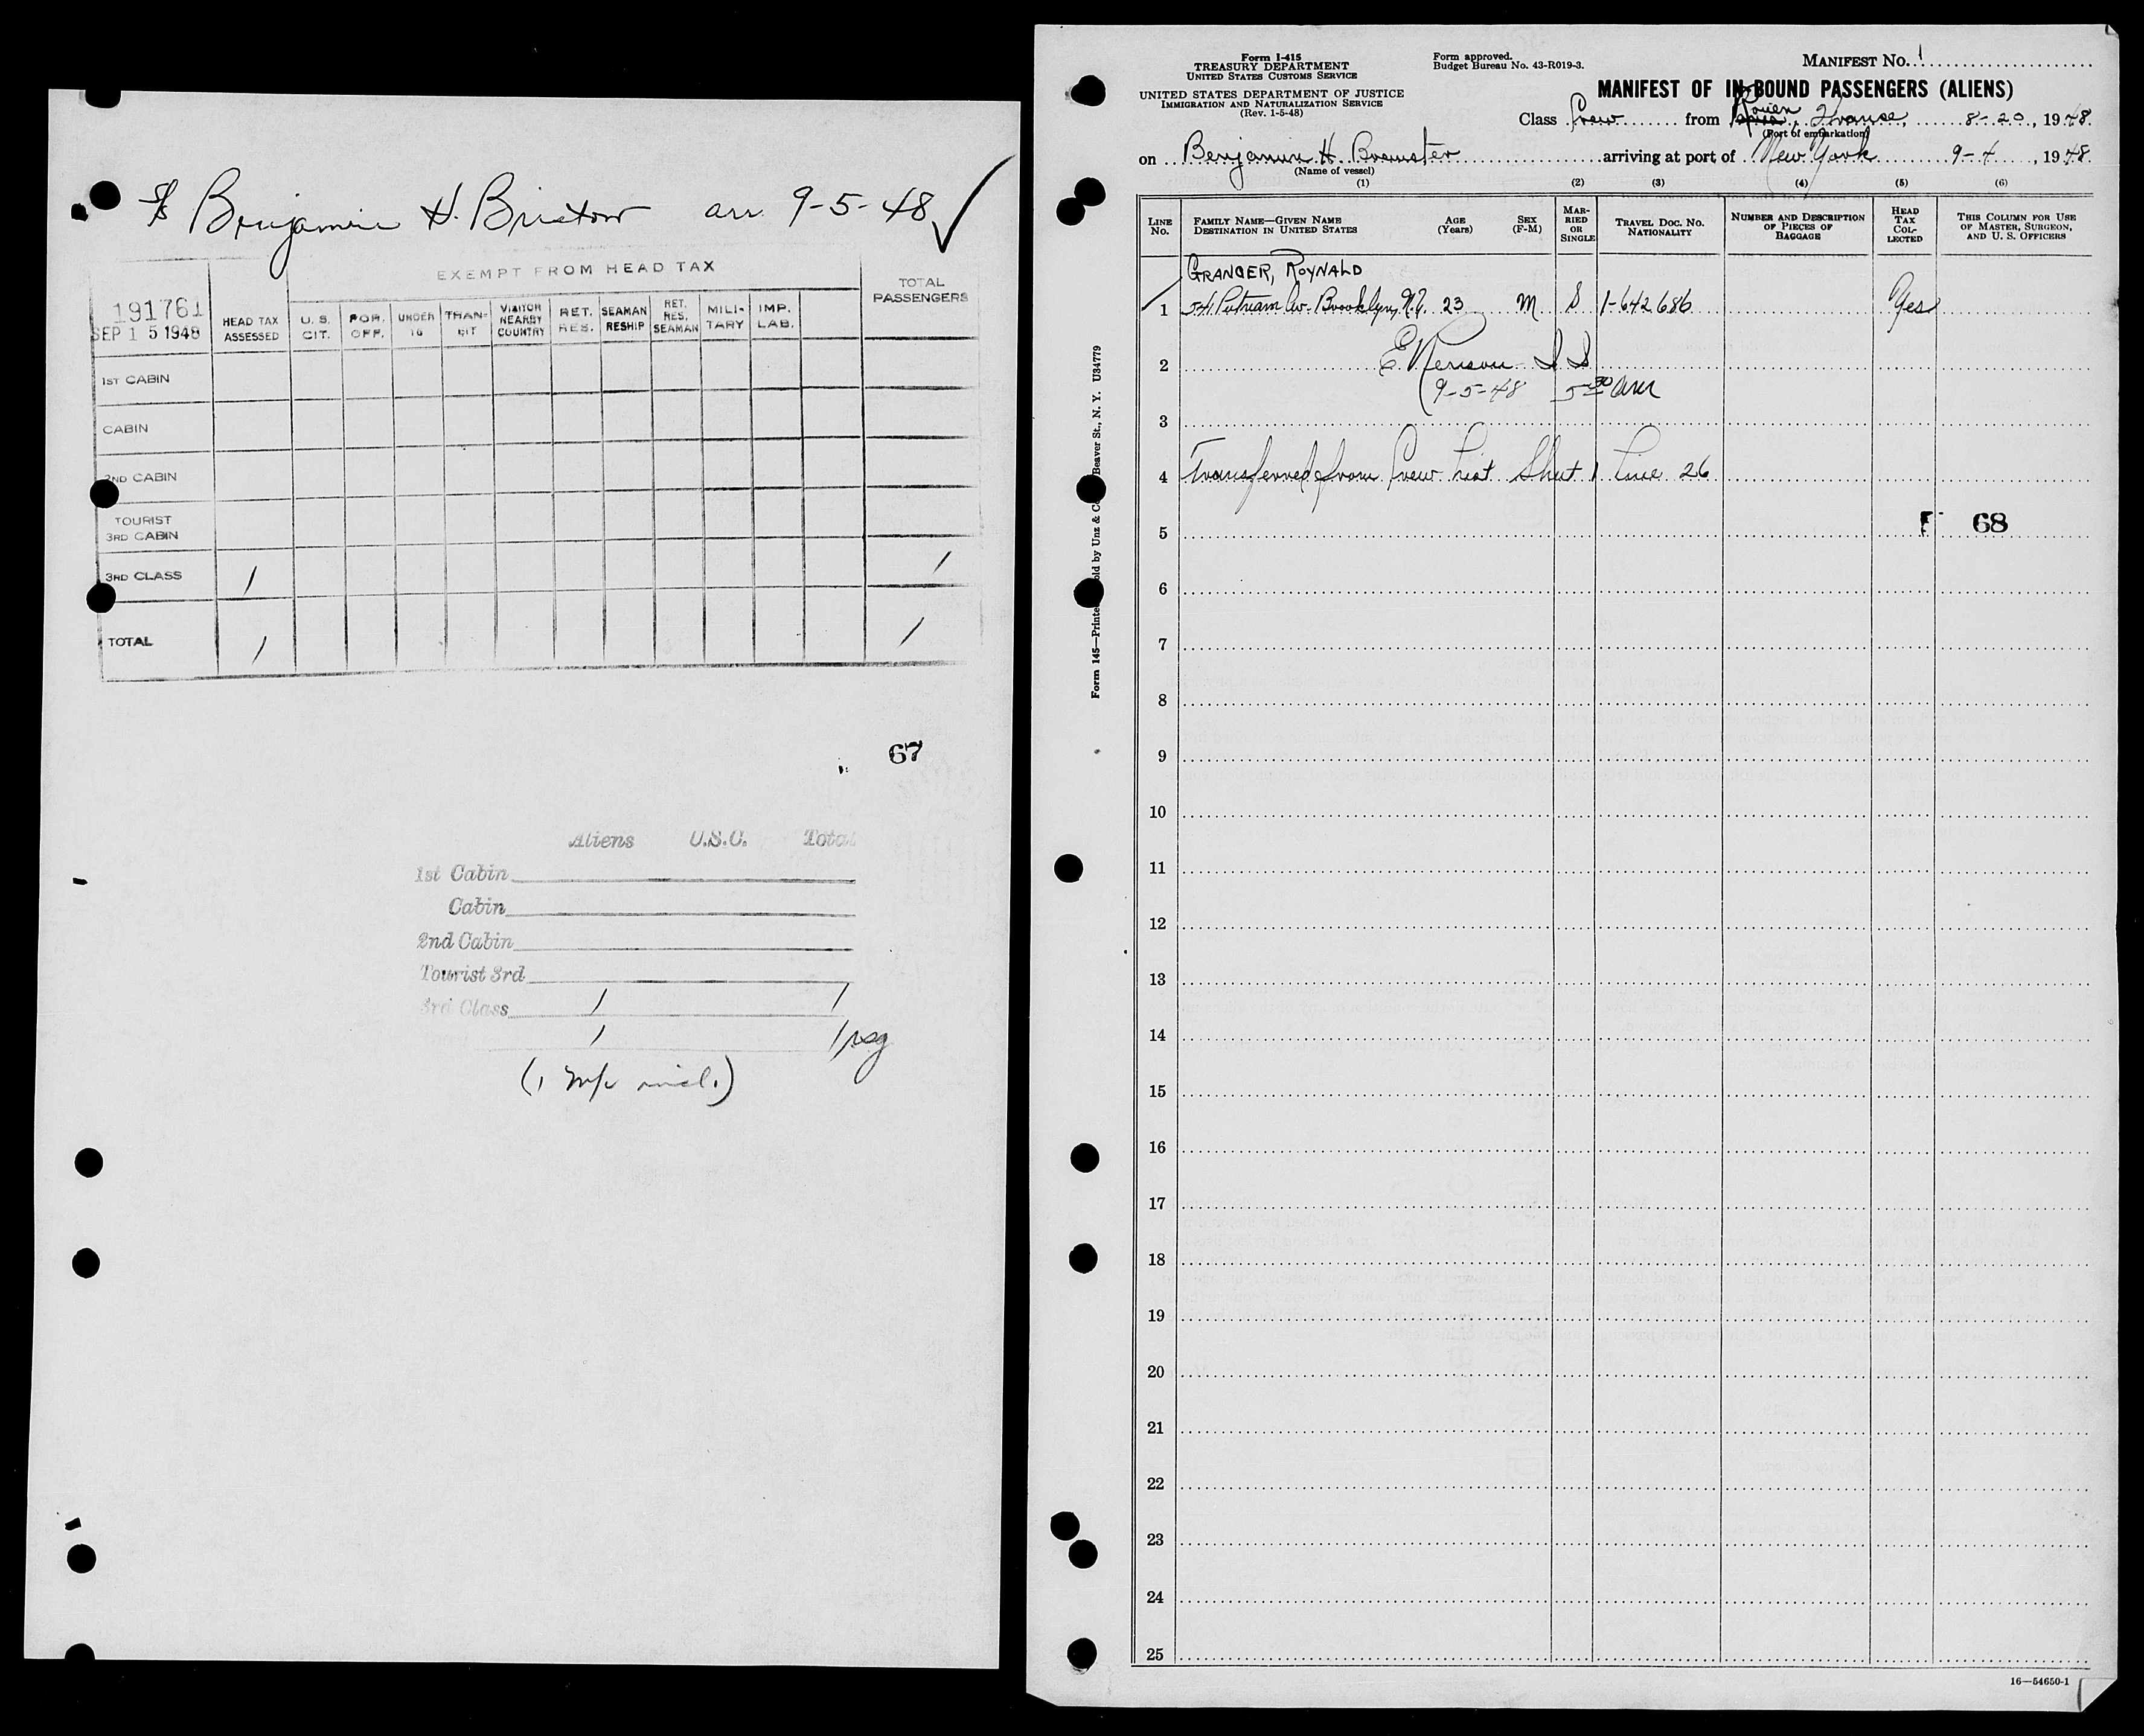 S/S Benjamin H. Bristow arr. 9-5-48
191761
SEP 15 1948
EXEMPT FROM HEAD TAX
HEAD TAX ASSESSED
U. S. CIT.
FOR. OFF.
UNDER 16
TRANSIT
VISITOR NEARBY COUNTRY
RET. RES.
SEAMAN RESHIP
RET. RES. SEAMAN
MILITARY
IMP. LAB.
TOTAL PASSENGERS
1ST CABIN
CABIN
2ND CABIN
TOURIST
3RD CABIN
3RD CLASS 1 1
TOTAL 1 1
67
Aliens U.S.C. Total
1st Cabin
Cabin
2nd Cabin
Tourist 3rd
3rd Class 1 1
1 1 psg
(1 incl.)
Form I-415
TREASURY DEPARTMENT
UNITED STATES CUSTOMS SERVICE
UNITED STATES DEPARTMENT OF JUSTICE
IMMIGRATION AND NATURALIZATION SERVICE
(Rev. 1-5-48)
Form approved.
Budget Bureau No. 43-R019-3.
MANIFEST NO. 1
MANIFEST OF IN-BOUND PASSENGERS (ALIENS)
Class Crew from Rouen, France, 8-20, 1948
(Port of embarkation)
on Benjamin H. Brewster arriving at port of New York 9-4, 1948
(Name of vessel)
(1) (2) (3) (4) (5) (6)
LINE NO.
FAMILY NAME—GIVEN NAME
DESTINATION IN UNITED STATES
AGE (Years)
SEX (F-M)
MARRIED OR SINGLE
TRAVEL DOC. NO. NATIONALITY
NUMBER AND DESCRIPTION OF PIECES OF BAGGAGE
HEAD TAX COLLECTED
THIS COLUMN FOR USE OF MASTER, SURGEON, AND U. S. OFFICERS
GRANGER, ROYNALD
1 541 Putnam Av. Brooklyn, N.Y. 23 M S 1-642686 Yes
2
9-5-48 5:30 AM
3
4 Transferred from Crew List Sheet 1 Line 26
5 68
6
7
8
9
10
11
12
13
14
15
16
17
18
19
20
21
22
23
24
25
Beaver St., N. Y. U34779
old by Unz & Co
Form 145—Printe
16—54650-1